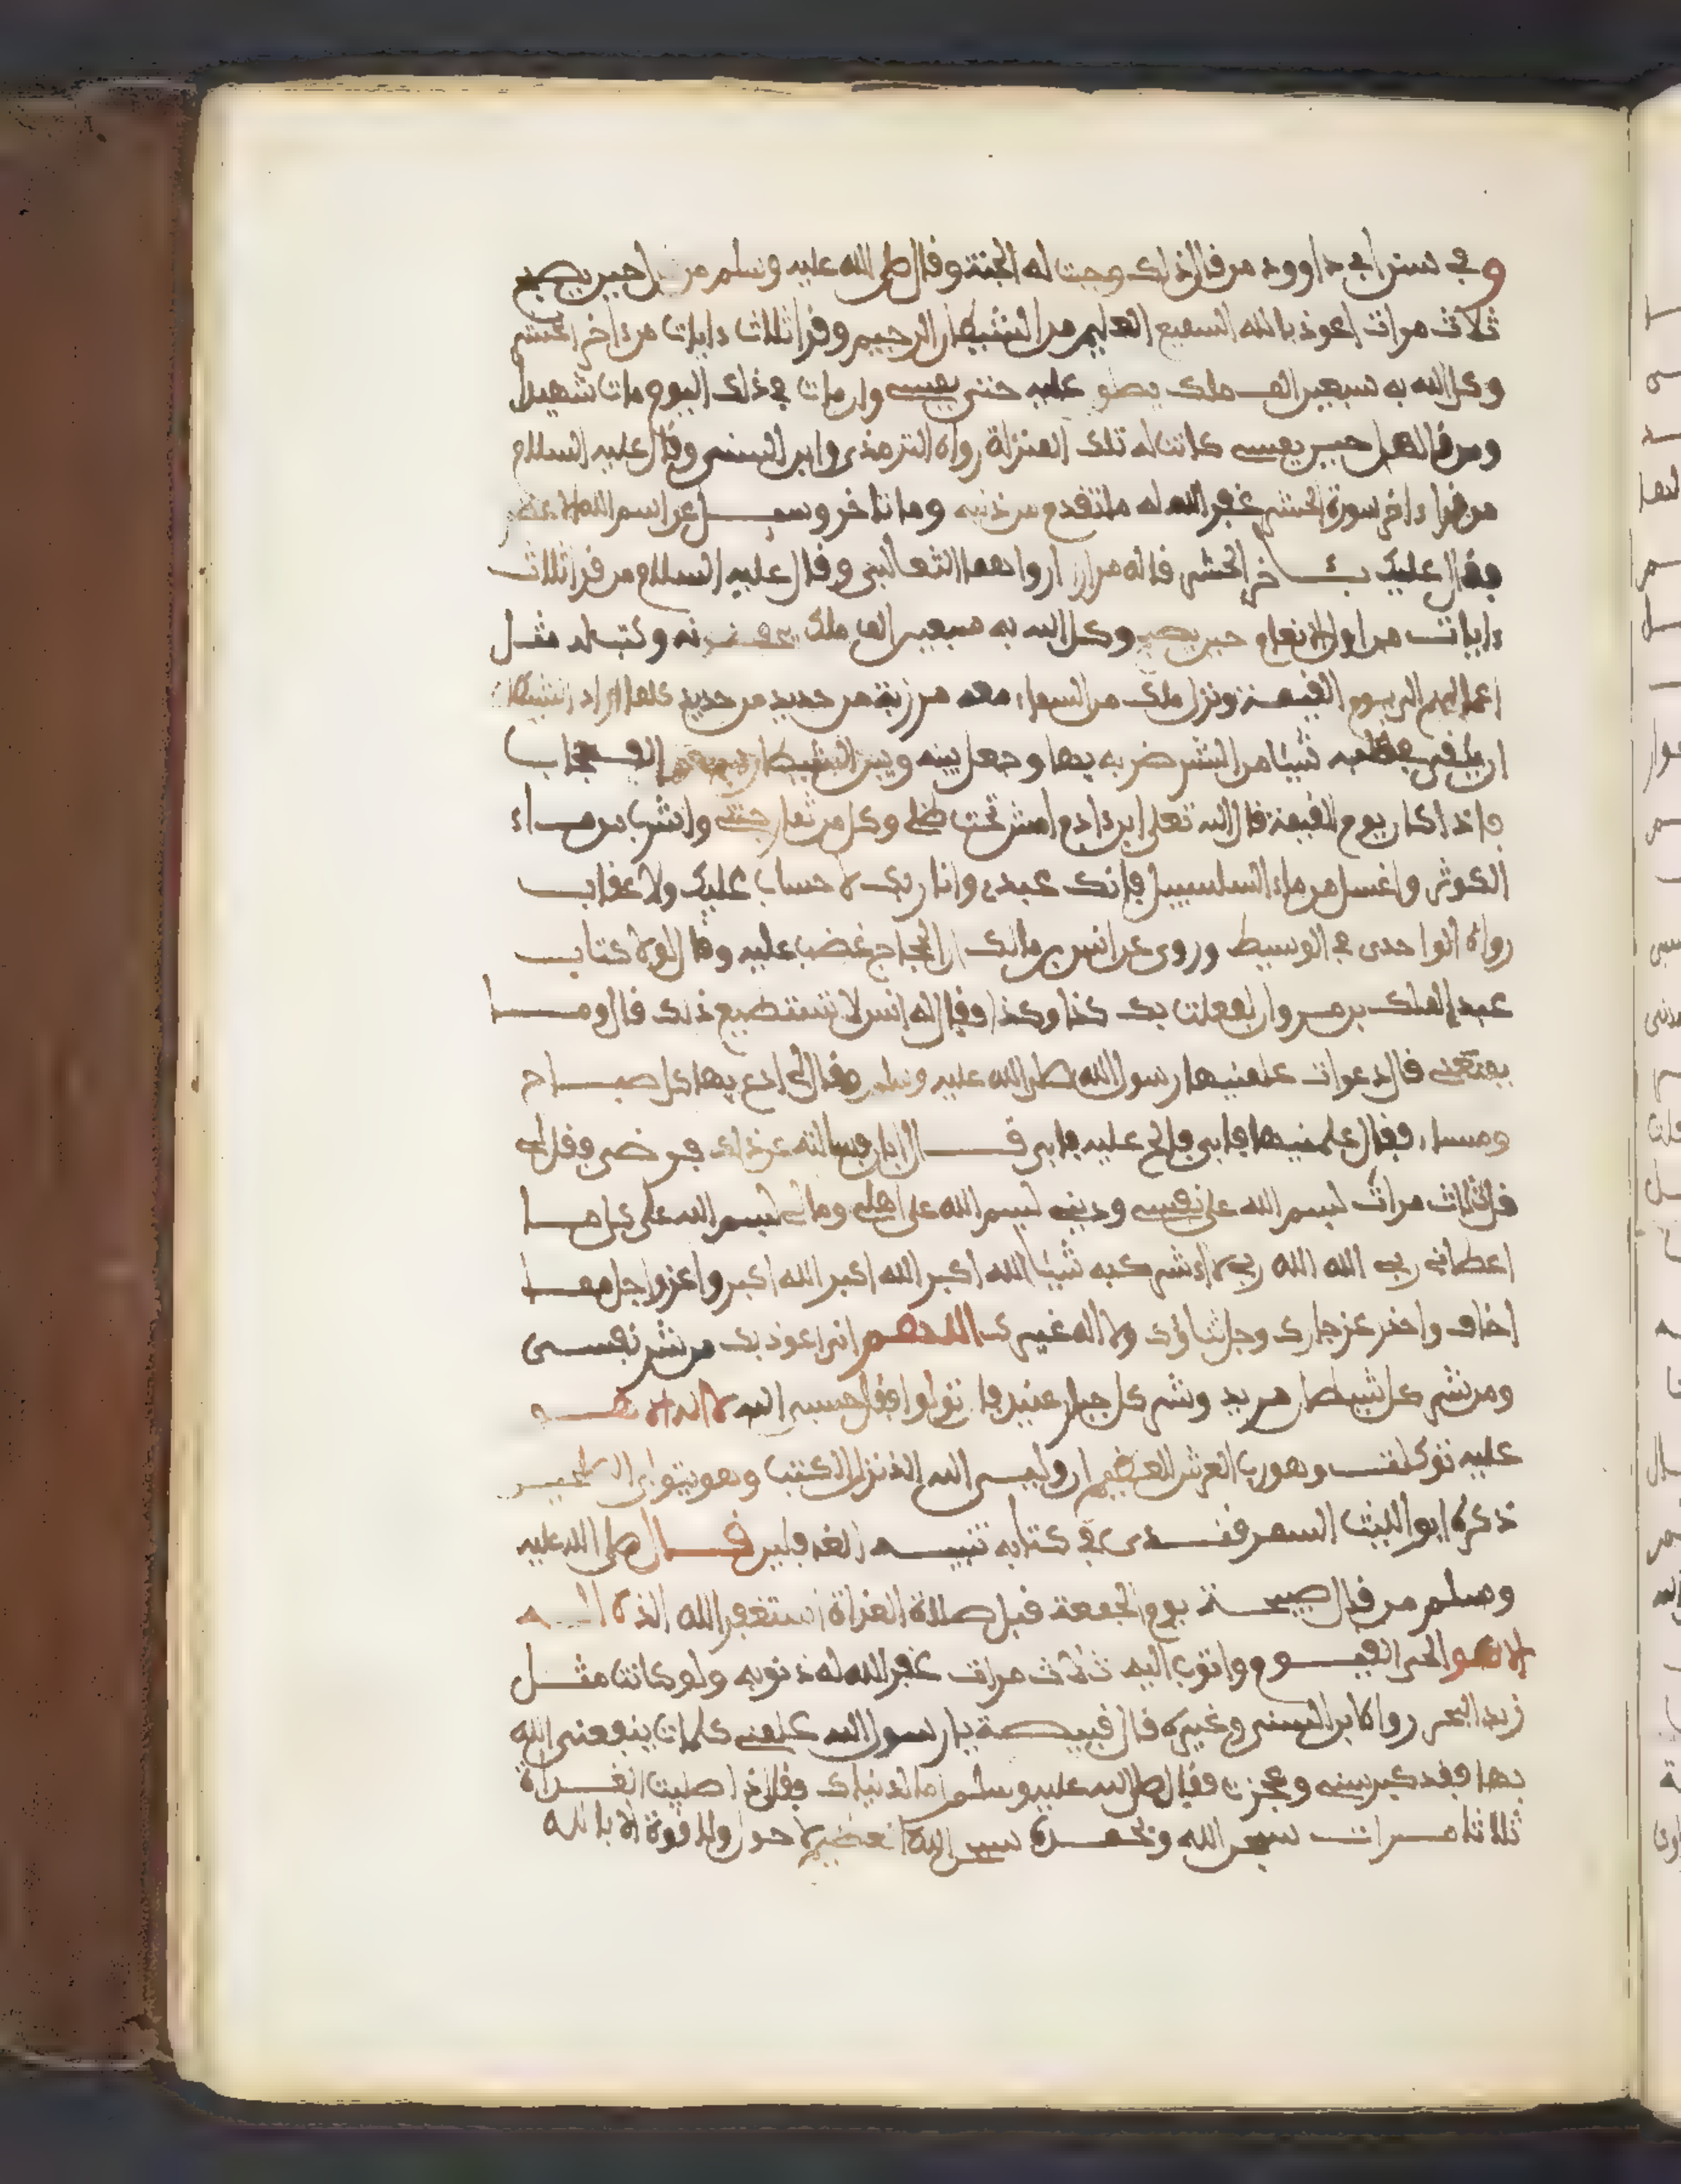 وفي سنن ابي داوود من قال ذلك وجبت له الجنة وقال صلى الله عليه وسلم من حين يصبح
ثلاث مرات اعوذ بالله السميع العليم من الشيطان الرجيم وقرا ثلاث ءايات من ءاخر الحشر
وكل الله به سبعين الف ملك يصلو عليه حتى يمسي وان مات في ذلك اليوم مات شهيدا
ومن قالها حين يمسي كانت له تلك المنزلة رواه الترمذي وابن السني وقال عليه السلام
من قرا ءاخر سورة الحشر غفر الله له ما تقدم من ذنبه وما تاخر وسيل عن اسم الله الاعظم
فقال عليك بئاخر الحشر قاله مرارا رواهما الثعالبي وقال عليه السلام من قرا ثلاث
ءايات من اول الانعام حين يصبح وكل الله به سبعين الف ملك يحفظونه وكتب له مثل
اعمالهم الى يوم القيمة ونزل ملك من السماء معه مرزبة من حديد من حديد كلما اراد الشيطان
ان يلقي بقلبه شيئا من الشر ضربه بها وجعل بينه وبين الشيطان الف حجاب
فاذا كان يوم القيمة قال الله تعلى ابن ءادم امش تحت ظلي وكل من ثمار جنتي واشرب من ماء
الكوثر واغسل من ماء السلسبيل فانك عبدي وانا ربك لا حساب عليك ولا عقاب
رواه الواحدي في الوسيط وروي عن انس بن مالك ان الحجاج غضب عليه وقال لولا كتاب
عبد الملك بن مروان لفعلت بك كذا وكذا فقال له انس لا تستطيع ذلك قال وما
يمنعني قال دعوات علمنيها رسول الله صلى الله عليه وسلم فقال لي ادع بها كل صباح
ومساء فقال علمنيها فابى فالح عليه فابى قال ابان فسالته عن ذلك في مرضه فقال لي
قل ثلاث مرات بسم الله على نفسي وديني بسم الله على اهلي ومالي بسم الله على كل ما
اعطاني ربي الله الله ربي لا اشرك به شيئا الله اكبر الله اكبر الله اكبر واعز واجل مما
اخاف واحذر عز جارك وجل ثناؤك ولا اله غيرك اللهم اني اعوذ بك من شر نفسي
ومن شر كل شيطان مريد وشر كل جبار عنيد فان تولوا فقل حسبي الله لا اله الا هو
عليه توكلت وهو رب العرش العظيم ان وليي الله الذي نزل الكتب وهو يتولى الصلحين
ذكره ابو الليث السمرقندي في كتابه تنبيه الغافلين قال صلى الله عليه
وسلم من قال صبيحة يوم الجمعة قبل صلاة الغداة استغفر الله الذي لا اله
الا هو الحي القيوم واتوب اليه ثلاث مرات غفر الله له ذنوبه ولو كانت مثل
زبد البحر رواه ابن السني وغيره قال قبيصة يا رسول الله علمني كلمات ينفعني الله
بها فقد كبر سني وعجزت فقال صلى الله عليه وسلم اما لدنياك فقل اذا صليت الغداة
ثلاثا مرات سبحن الله وبحمده سبحن الله العظيم لا حول ولا قوة الا بالله